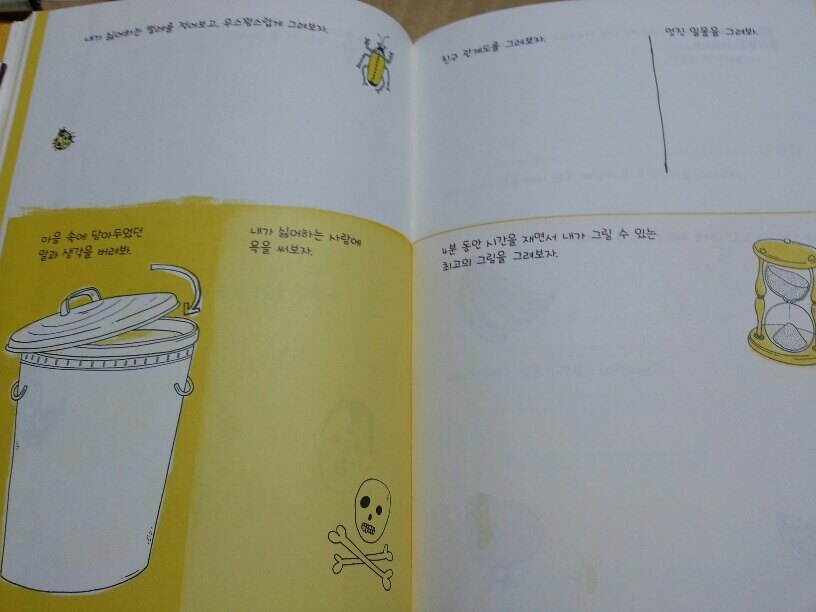 내가 싫어하는 벌레를 적어보고, 우스꽝스럽게 그려보자.
마음 속에 담아두었던
말과 생각을 버려봐.
내가 싫어하는 사람에
욕을 써보자.
친구 관계도를 그려보자.
멋진 일몰을 그려봐.
4분 동안 시간을 재면서 내가 그릴 수 있는
최고의 그림을 그려보자.